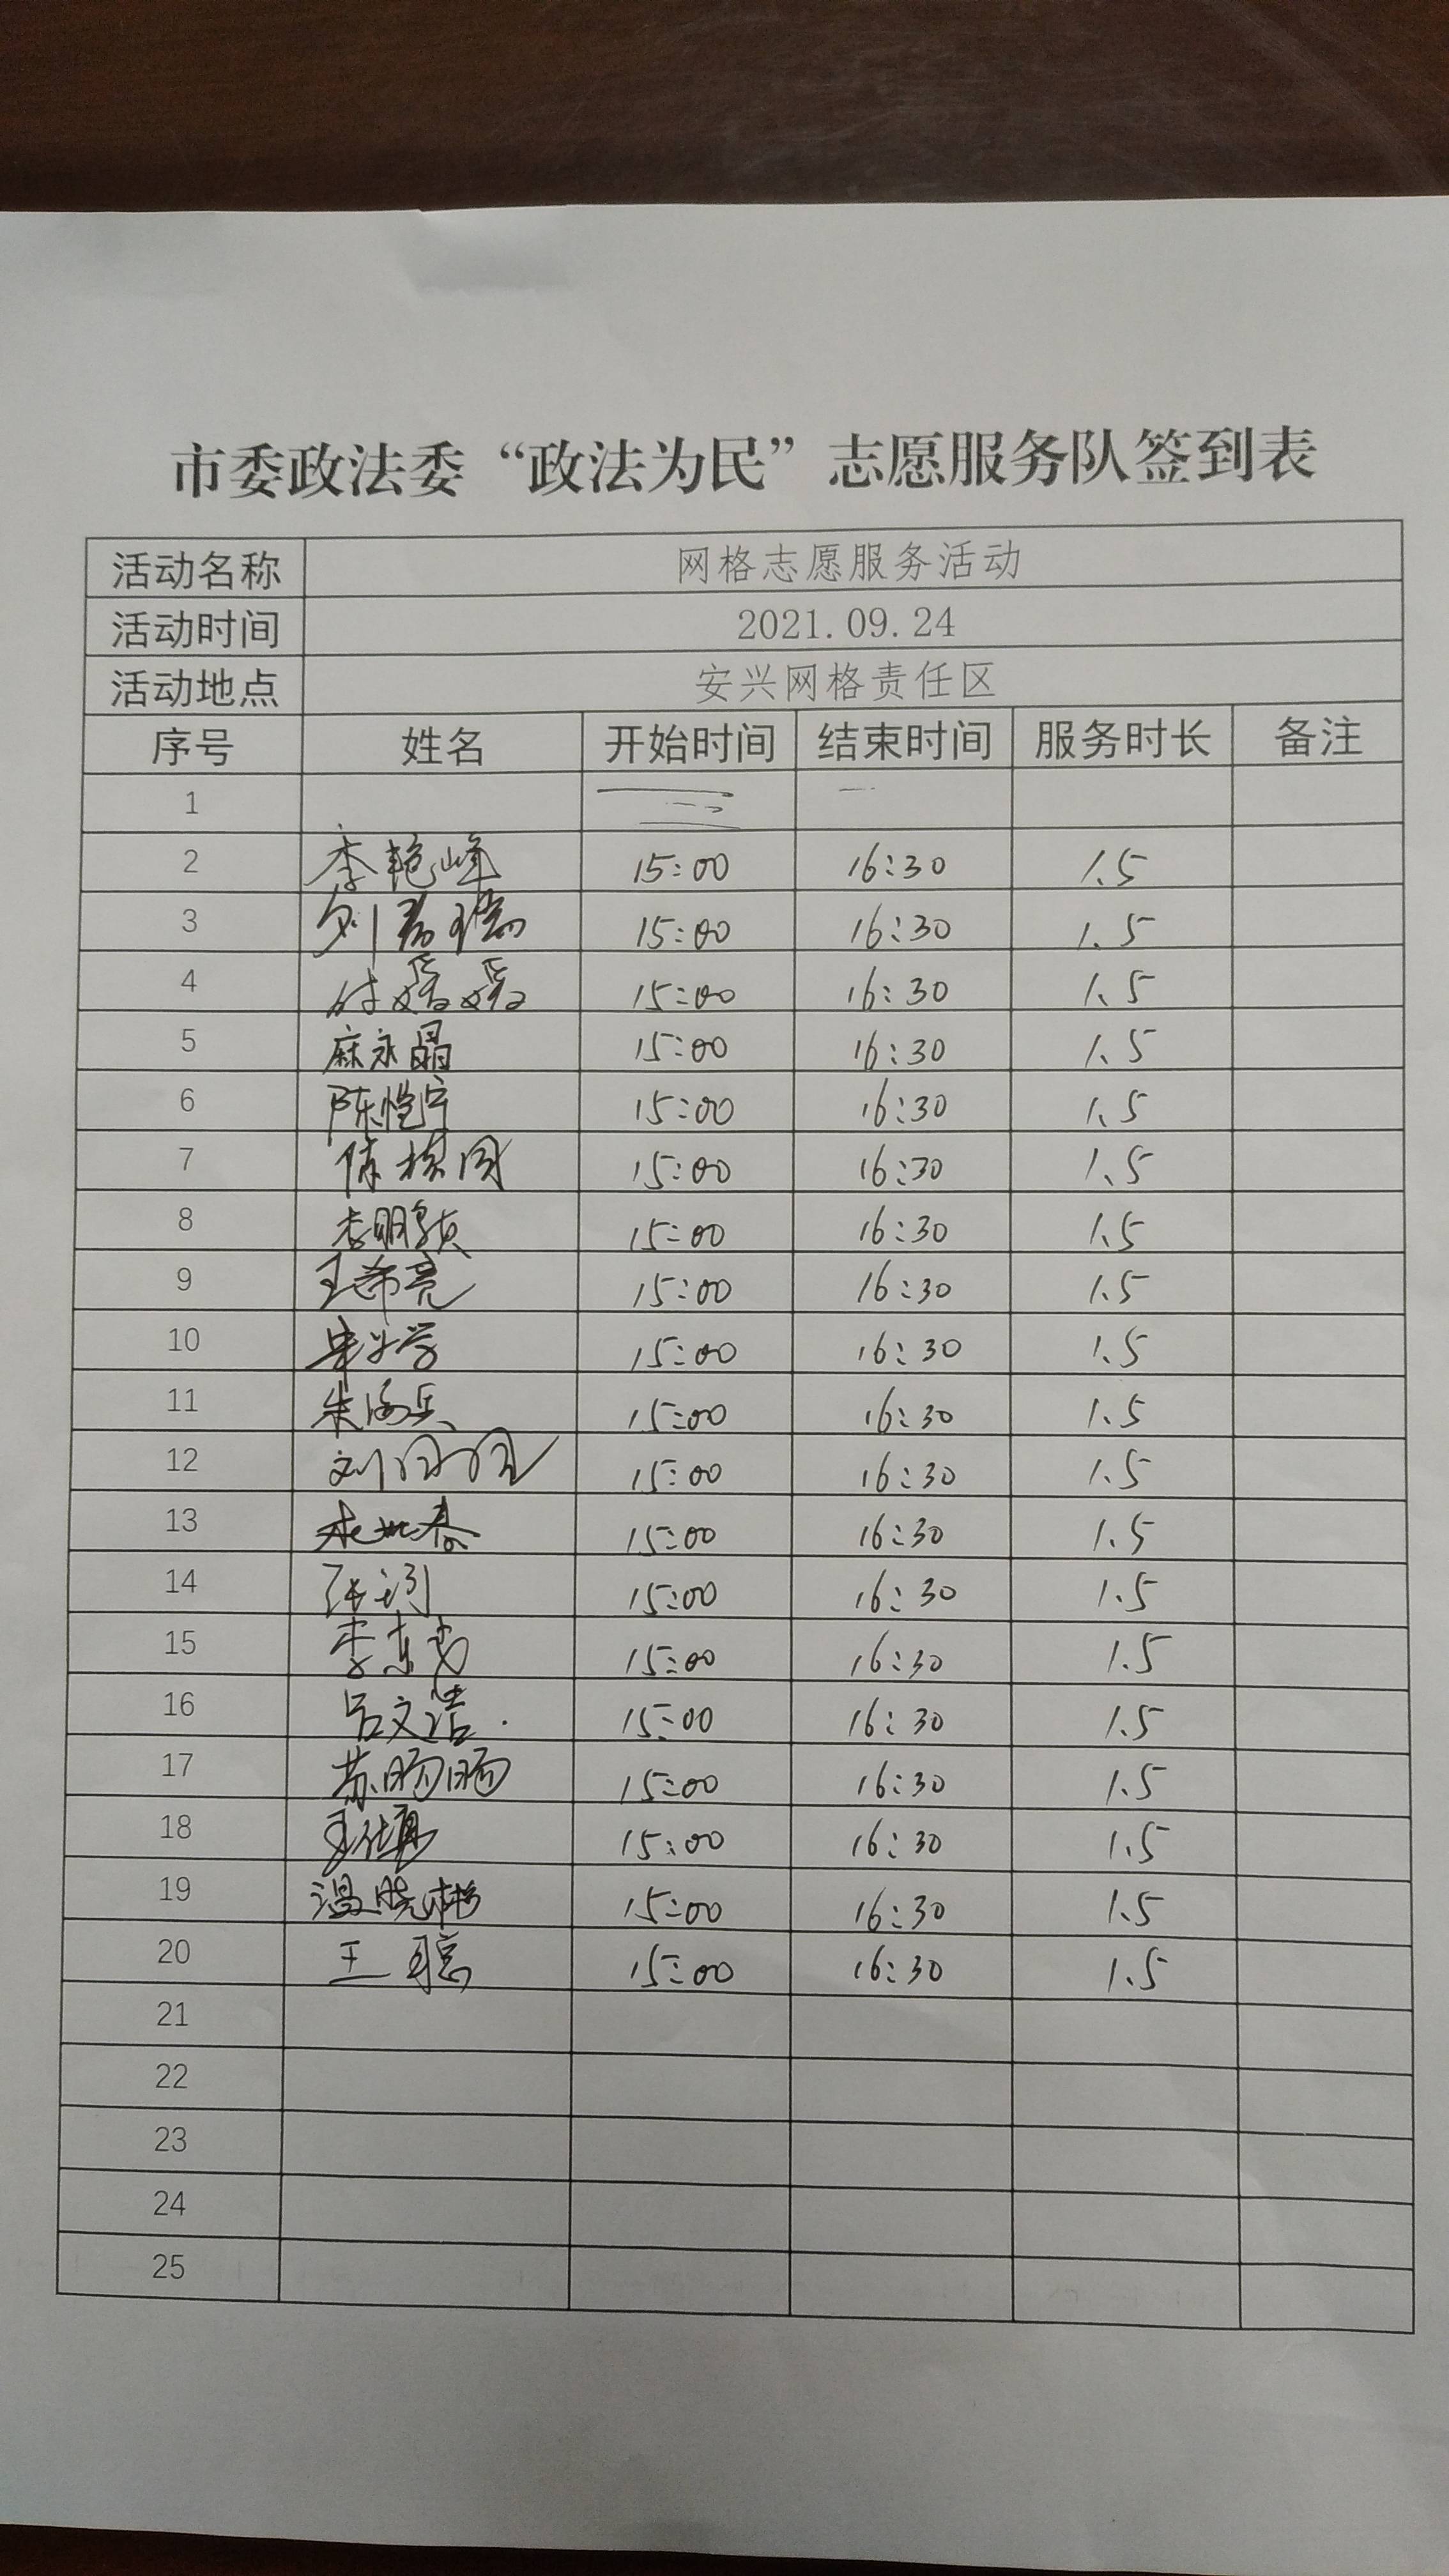 市委政法委“政法为民”志愿服务队签到表
活动名称 网格志愿服务活动
活动时间 2021.09.24
活动地点 安兴网格责任区
序号 姓名 开始时间 结束时间 服务时长 备注
1
2 李艳峰 15:00 16:30 1.5
3 15:00 16:30 1.5
4 付媛媛 15:00 16:30 1.5
5 麻永晶 15:00 16:30 1.5
6 陈恺宁 15:00 16:30 1.5
7 15:00 16:30 1.5
8 李明颖 15:00 16:30 1.5
9 王希亮 15:00 16:30 1.5
10 15:00 16:30 1.5
11 朱海兵 15:00 16:30 1.5
12 15:00 16:30 1.5
13 15:00 16:30 1.5
14 15:00 16:30 1.5
15 15:00 16:30 1.5
16 吕文洁 15:00 16:30 1.5
17 苏旸旸 15:00 16:30 1.5
18 15:00 16:30 1.5
19 温晓彬 15:00 16:30 1.5
20 王聪 15:00 16:30 1.5
21
22
23
24
25